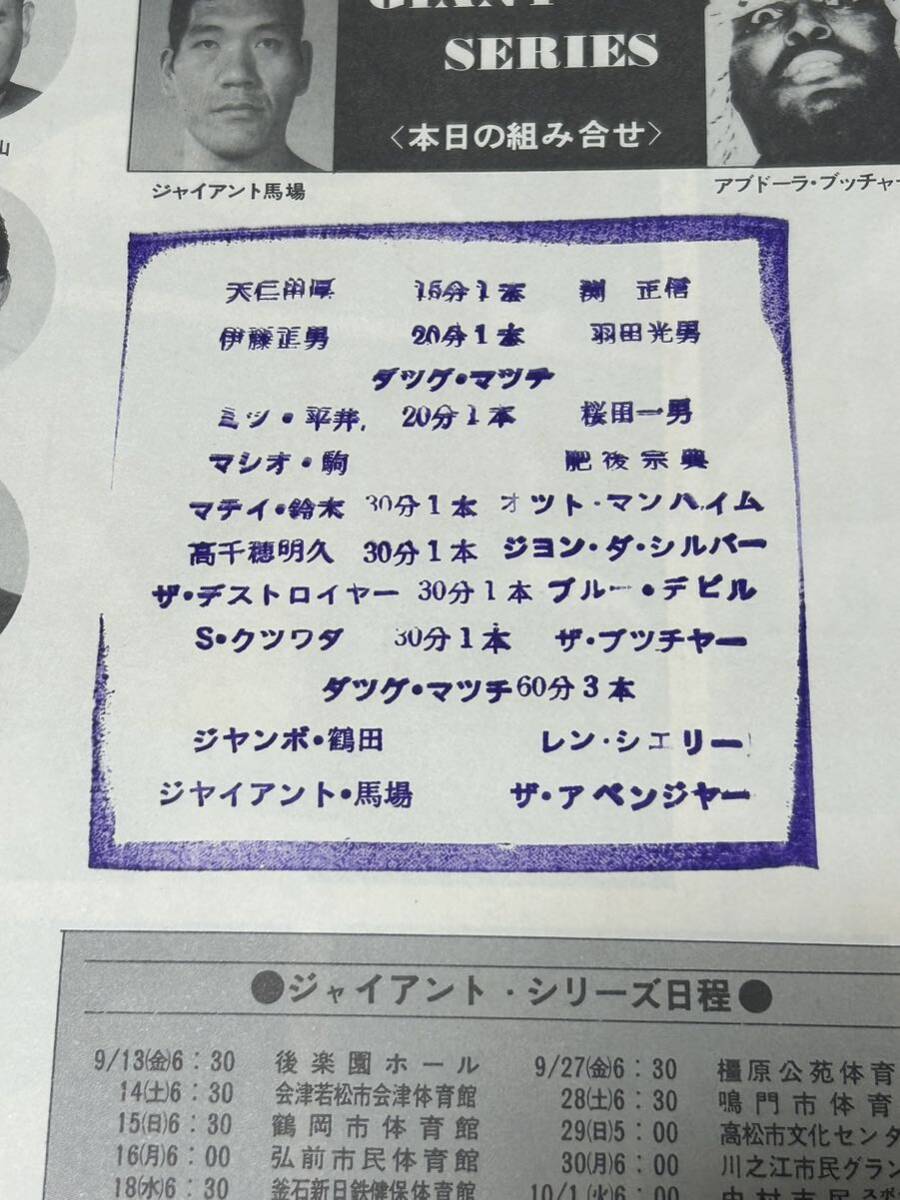 GIANT
SERIES
〈本日の組み合せ〉
山
ジャイアント馬場
アブドーラ・ブッチャー
大仁田厚 15分1本 渕 正信
伊藤正男 20分1本 羽田光男
タツグ・マツチ
ミツ・平井 20分1本 桜田一男
マシオ・駒 肥後宗典
マテイ・鈴木 30分1本 オツト・マンハイム
高千穂明久 30分1本 ジヨン・ダ・シルバー
ザ・デストロイヤー 30分1本 ブルー・デビル
S・クツワダ 30分1本 ザ・ブツチヤー
タツグ・マツチ 60分3本
ジヤンボ・鶴田 レン・シエリー
ジヤイアント・馬場 ザ・アベンジヤー
●ジャイアント・シリーズ日程●
9/13㈮6:30 後楽園ホール
14㈯6:30 会津若松市会津体育館
15㈰6:30 鶴岡市体育館
16㈪6:00 弘前市民体育館
18㈬6:30 釜石新日鉄健保体育館
9/27㈮6:30 橿原公苑体育
28㈯6:30 鳴門市体育
29㈰5:00 高松市文化センタ
30㈪6:00 川之江市民グラン
10/1㈫6:00